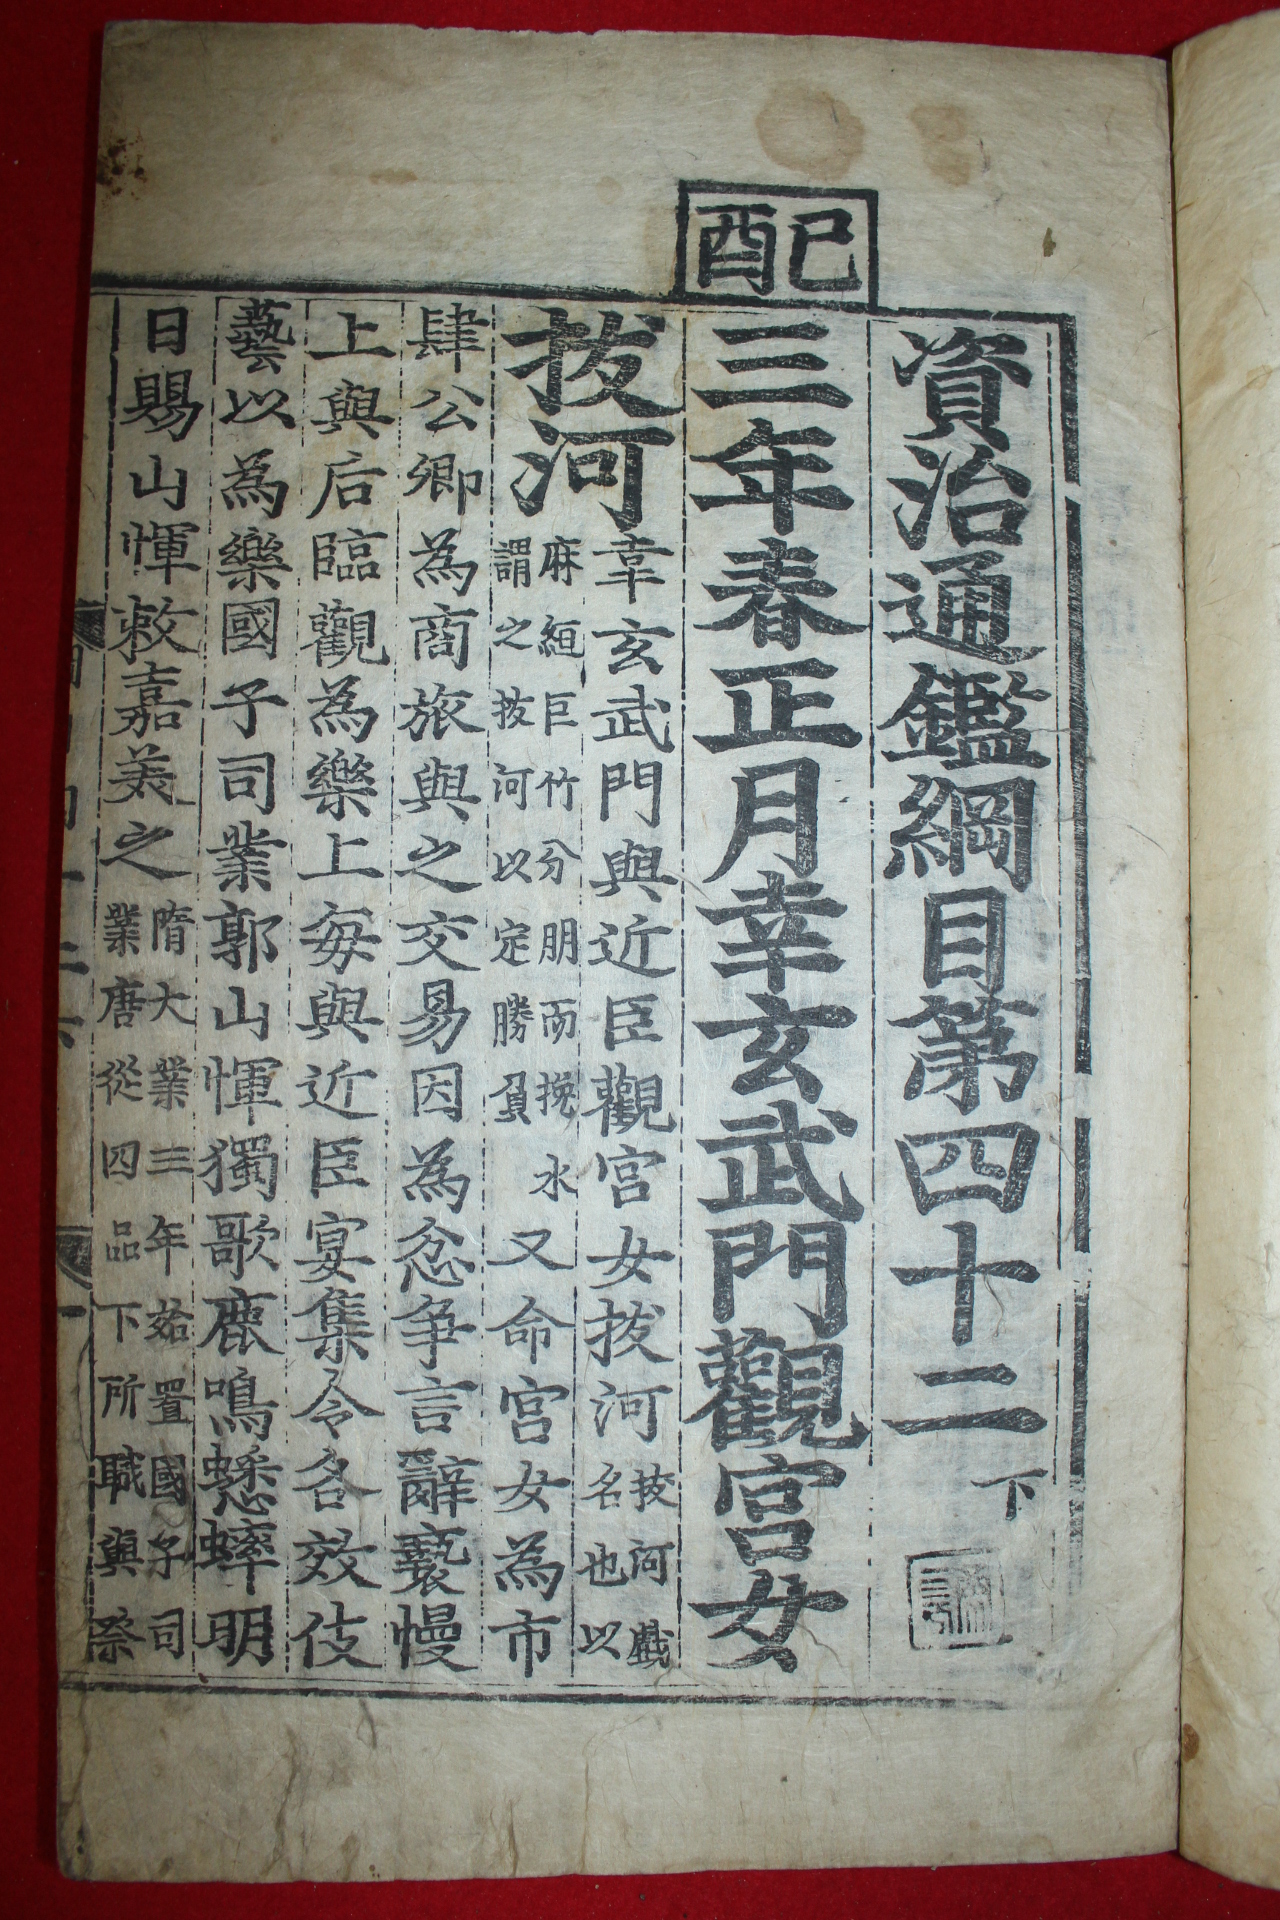 己酉
資治通鑑綱目第四十二 下
三年春正月幸玄武門觀宮女
拔河
韋玄武門與近臣觀宮女拔河 拔河戲
名也以
麻絙巨竹分朋而挽水
謂之拔河以定勝負
又命宮女為市
肆公卿為商旅與之交易因為忿爭言辭褻慢
上與后臨觀為樂上每與近臣宴集令各效伎
藝以為樂國子司業郭山惲獨歌鹿鳴蟋蟀明
日賜山惲敕嘉美之
隋大業三年始置國子司
業唐從四品下所職與祭